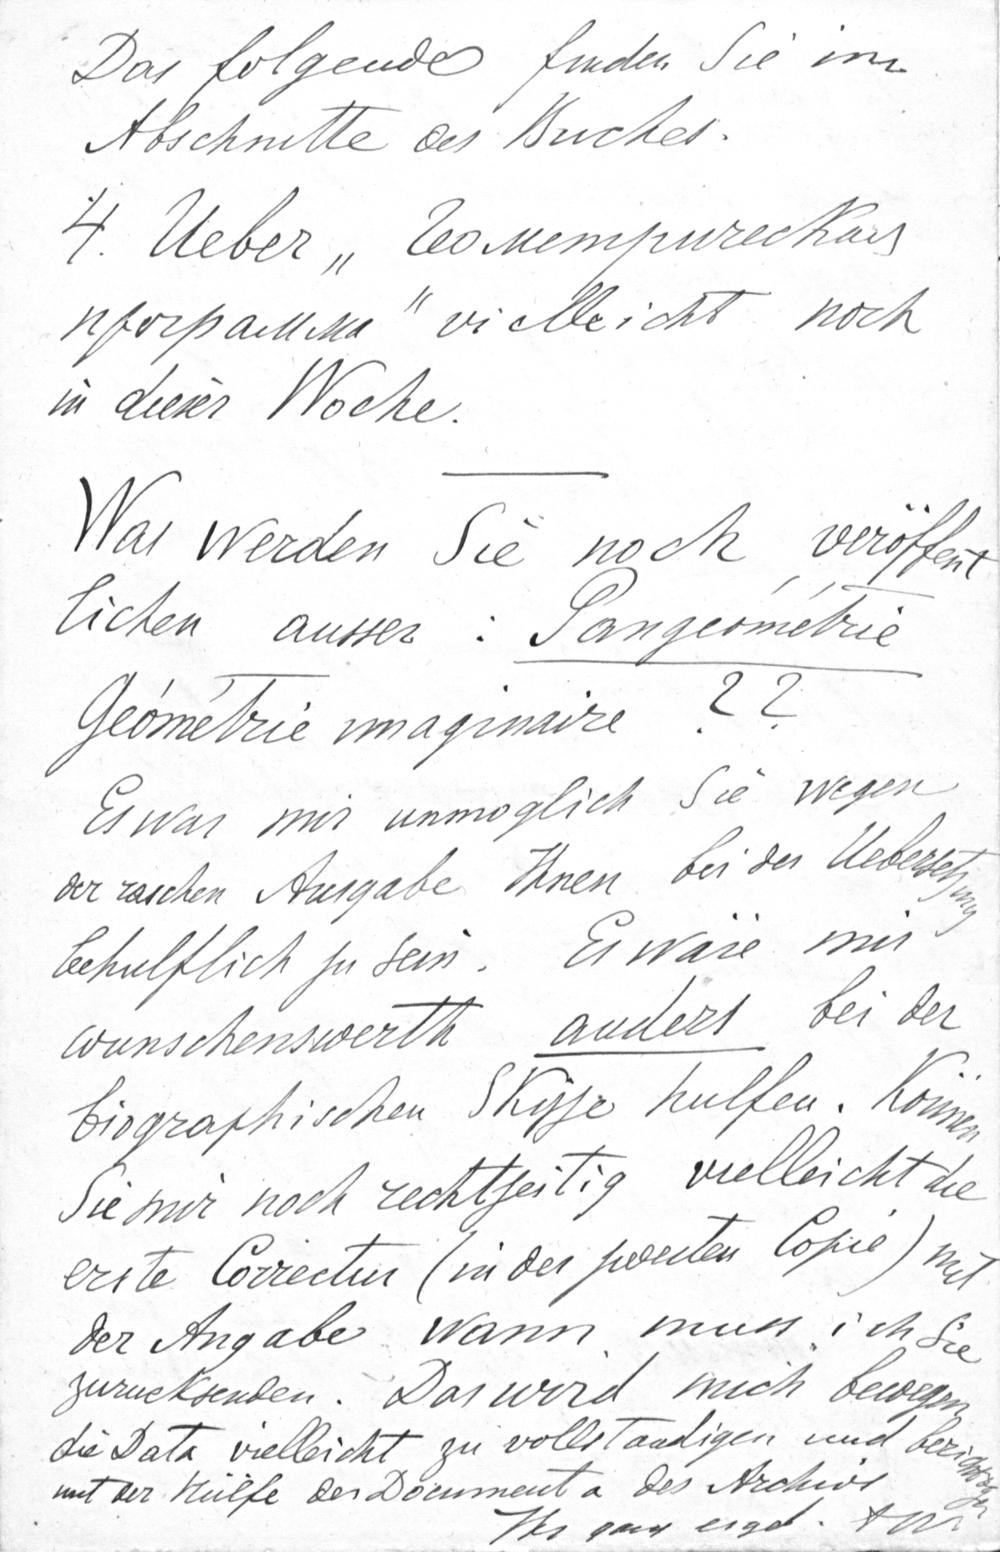 Das folgende finden Sie im
Abschnitte des Buches.
4. Ueber „Геометрическая
программа" vielleicht noch
in dieser Woche.
Was werden Sie noch veröffent
lichen ausser : Pangéométrie
Géométrie imaginaire ??
Es war mir unmoglich Sie wegen
der raschen Ausgabe Ihnen bei der Uebersetzung
behulflich zu sein. Es wäre mir
wunschenswerth anders bei der
biographischen Skizze hulfen. Können
Sie mir noch rechtzeitig vielleicht die
erste Correctur (in der zweiten Copie) mit
der Angabe wann muss ich Sie
zurucksenden. Das wird mich bewegen
die Data vielleicht zu vollstandigen und berichtigen
mit der Hülfe der Documenta des Archivs
Ihr ganz ergeb.